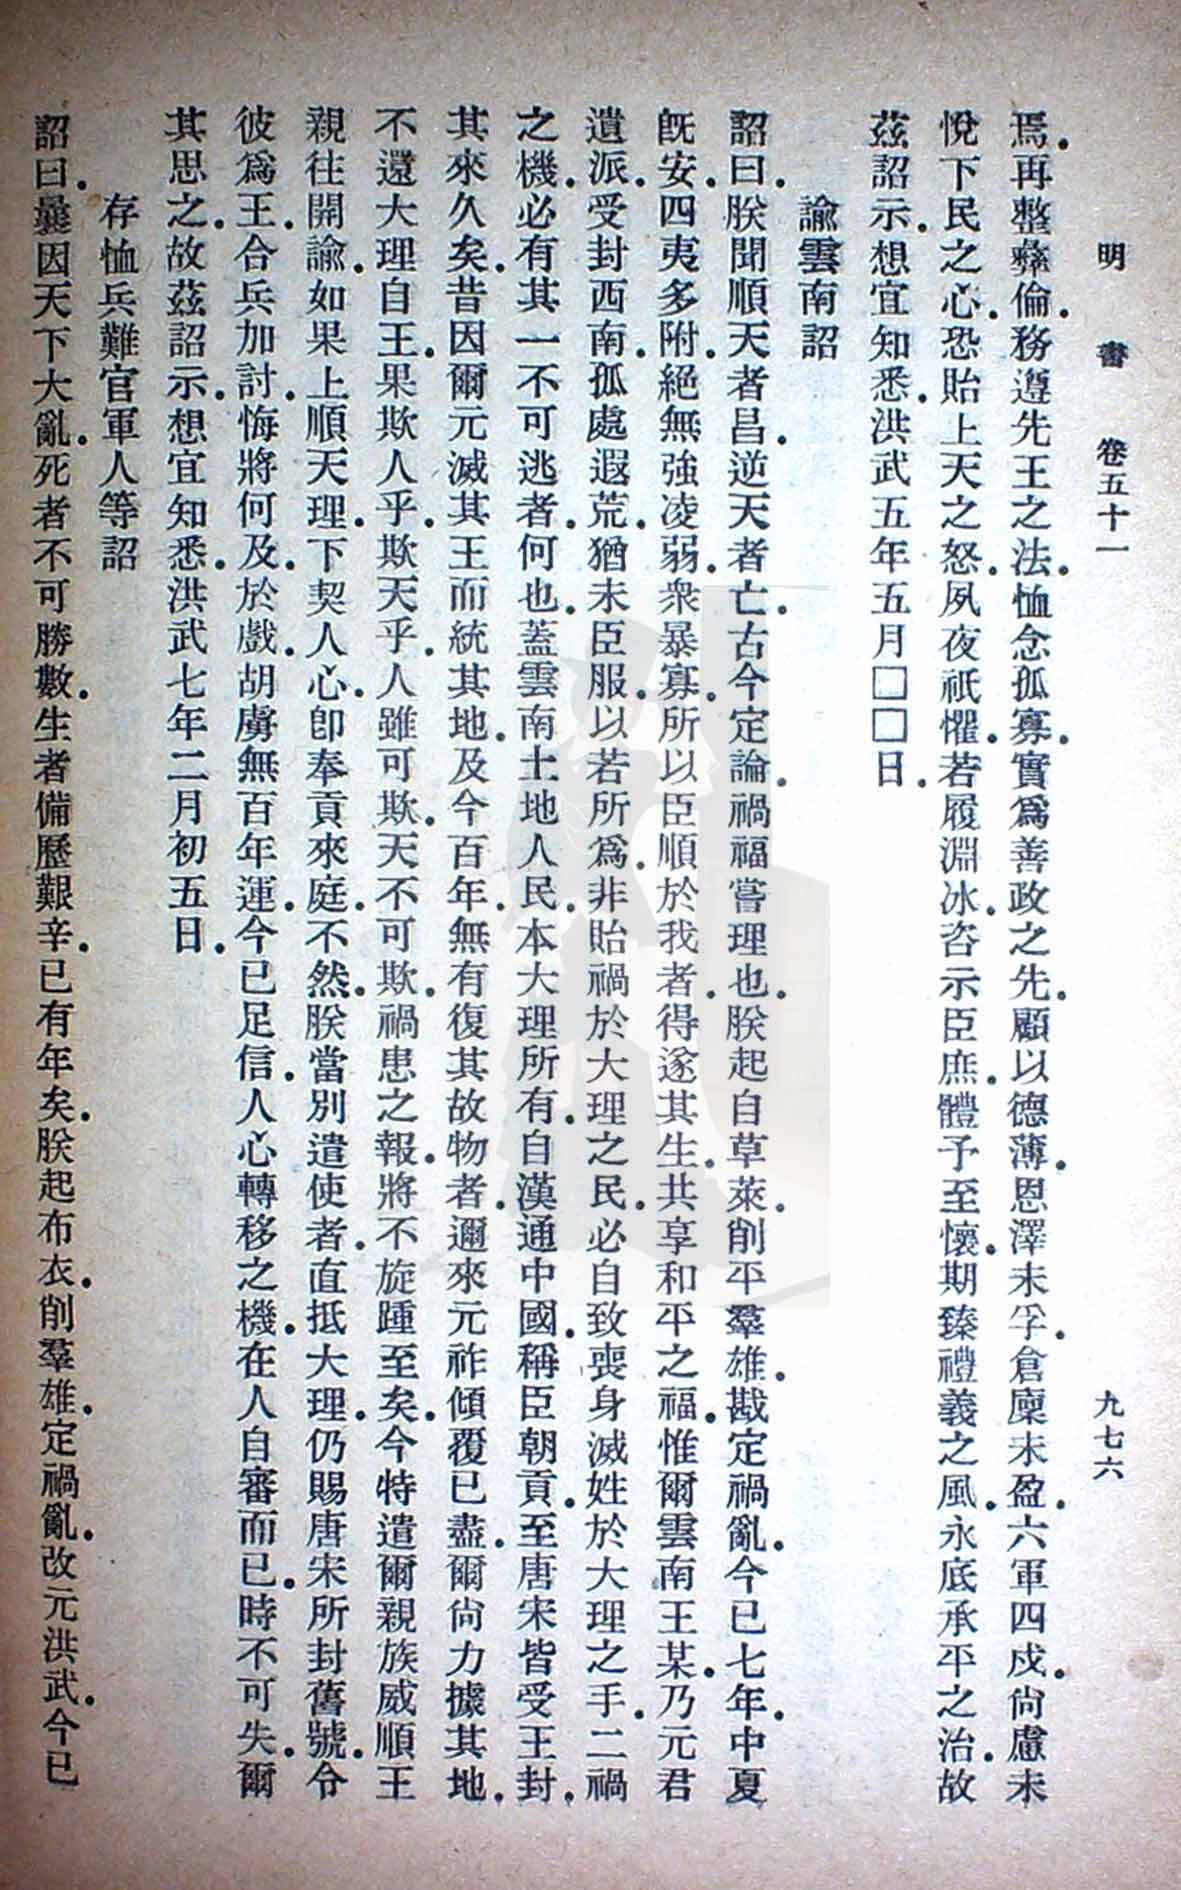 明書 卷五十一 九七六
焉.再整彝倫.務遵先王之法.恤念孤寡.實爲善政之先.顧以德薄.恩澤未孚.倉廩未盈.六軍四戍.尙慮未
悅下民之心.恐貽上天之怒.夙夜祇懼.若履淵冰.咨示臣庶.體予至懷.期臻禮義之風.永底承平之治.故
茲詔示.想宜知悉.洪武五年五月□□日.
諭雲南詔
詔曰.朕聞順天者昌.逆天者亡.古今定論.禍福嘗理也.朕起自草萊.削平羣雄.戡定禍亂.今已七年.中夏
旣安.四夷多附.絕無強凌弱.衆暴寡.所以臣順於我者.得遂其生.共享和平之福.惟爾雲南王某.乃元君
遺派.受封西南.孤處遐荒.猶未臣服.以若所爲.非貽禍於大理之民.必自致喪身滅姓於大理之手.二禍
之機.必有其一不可逃者.何也.蓋雲南土地人民.本大理所有.自漢通中國.稱臣朝貢.至唐宋皆受王封.
其來久矣.昔因爾元滅其王而統其地.及今百年.無有復其故物者.邇來元祚傾覆已盡.爾尙力據其地.
不還大理自王.果欺人乎.欺天乎.人雖可欺.天不可欺.禍患之報.將不旋踵至矣.今特遣爾親族威順王
親往開諭.如果上順天理.下契人心.卽奉貢來庭.不然.朕當別遣使者.直抵大理.仍賜唐宋所封舊號.令
彼爲王.合兵加討.悔將何及.於戲.胡虜無百年運.今已足信.人心轉移之機.在人自審而已.時不可失.爾
其思之.故茲詔示.想宜知悉.洪武七年二月初五日.
存恤兵難官軍人等詔
詔曰.曩因天下大亂.死者不可勝數.生者備歷艱辛.已有年矣.朕起布衣.削羣雄.定禍亂.改元洪武.今已